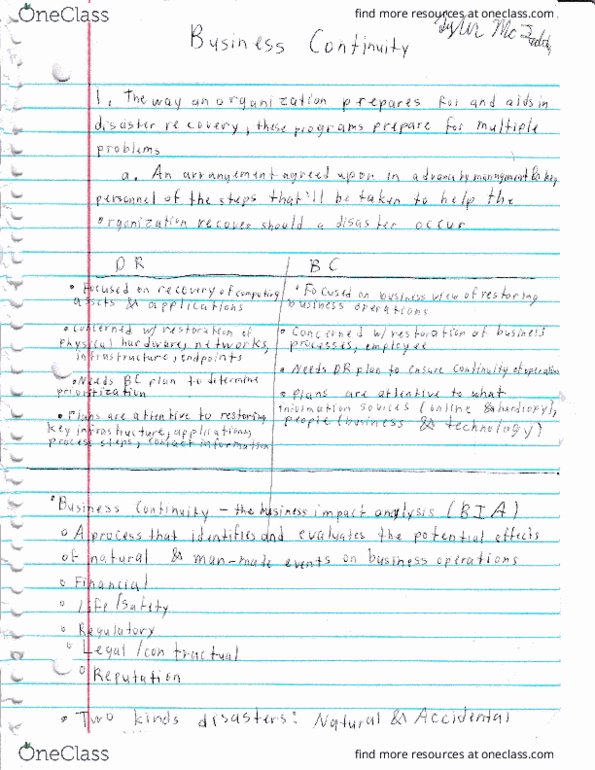 OneClass
find more resources at oneclass.com
Tyler Mc
Business Continuity
1. The way an organization prepares for and aids in
disaster recovery, these programs prepare for multiple
problems
a. An arrangement agreed upon in advance by management & key
personnel of the steps that'll be taken to help the
organization recover should a disaster occur
DR
BC
• Focused on recovery of computing
assets & applications
• Concerned w/ restoration of
physical hardware, networks,
infrastructure, endpoints
• Needs BC plan to determine
prioritization
• Plans are attentive to restoring
key infrastructure, applications,
process steps, contact information
• Focused on business view of restoring
business operations
• Concerned w/ restoration of business
processes, employee
• Needs DR plan to ensure continuity of operation
• Plans are attentive to what
information sources (online & hardcopy),
people (business & technology)
• Business Continuity - the business impact analysis (BIA)
o A process that identifies and evaluates the potential effects
of natural & man-made events on business operations
o Financial
o Life/Safety
o Regulatory
o Legal/contractual
o Reputation
• Two kinds disasters: Natural & Accidental
OneClass
find more resources at oneclass.com